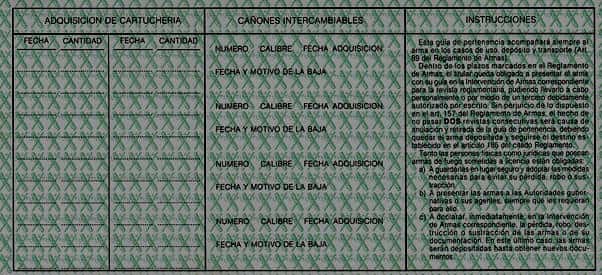 ADQUISICION DE CARTUCHERIA
FECHA CANTIDAD FECHA CANTIDAD
CAÑONES INTERCAMBIABLES
NUMERO CALIBRE FECHA ADQUISICION
FECHA Y MOTIVO DE LA BAJA
NUMERO CALIBRE FECHA ADQUISICION
FECHA Y MOTIVO DE LA BAJA
NUMERO CALIBRE FECHA ADQUISICION
FECHA Y MOTIVO DE LA BAJA
NUMERO CALIBRE FECHA ADQUISICION
FECHA Y MOTIVO DE LA BAJA
INSTRUCCIONES
Esta guía de pertenencia acompañará siempre al
arma en los casos de uso, depósito y transporte (Art.
89 del Reglamento de Armas).
Dentro de los plazos marcados en el Reglamento
de Armas, el titular queda obligado a presentar el arma
con su guía en la Intervención de Armas correspondiente
para la revista reglamentaria, pudiendo llevarlo a cabo
personalmente o por medio de un tercero debidamente
autorizado por escrito. Sin perjuicio de lo dispuesto
en el art. 157 del Reglamento de Armas, el hecho de
no pasar DOS revistas consecutivas será causa de
anulación y retirada de la guía de pertenencia, debiendo
quedar el arma depositada y seguirse el destino es-
tablecido en el artículo 165 del citado Reglamento.
Tanto las personas físicas como jurídicas que posean
armas de fuego sometidas a licencia están obligadas:
a) A guardarlas en lugar seguro y adoptar las medidas
necesarias para evitar su pérdida, robo o sus-
tracción.
b) A presentar las armas a las Autoridades guber-
nativas o sus agentes, siempre que les requieran
para ello.
c) A declarar, inmediatamente, en la Intervención
de Armas correspondiente, la pérdida, robo, des-
trucción o sustracción de las armas o de su
documentación. En este último caso, las armas
serán depositadas hasta obtener nuevos docu-
mentos.